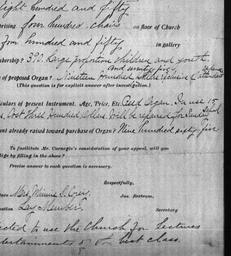 eight hundred and fifty
prising four hundred chairs on floor of Church
four hundred and fifty in gallery
embership? 390 large proportion children and youth
and seventy five
of proposed Organ? Nineteen hundred
(This question is for explicit answer after investigation.)
iculars of present Instrument. Age, Price, Etc. Reed Organ. In use 15
Cost three hundred dollars. Will be
unt already raised toward purchase of Organ? Nine hundred eighty five
To facilitate Mr. Carnegie's consideration of your appeal, will you
lige by filling in the above?
Precise answer to each question is necessary.
Respectfully,
Jas. Bertram,
Secretary
Lay Member
cted to use the Church for Lectures
tertainments of best class.